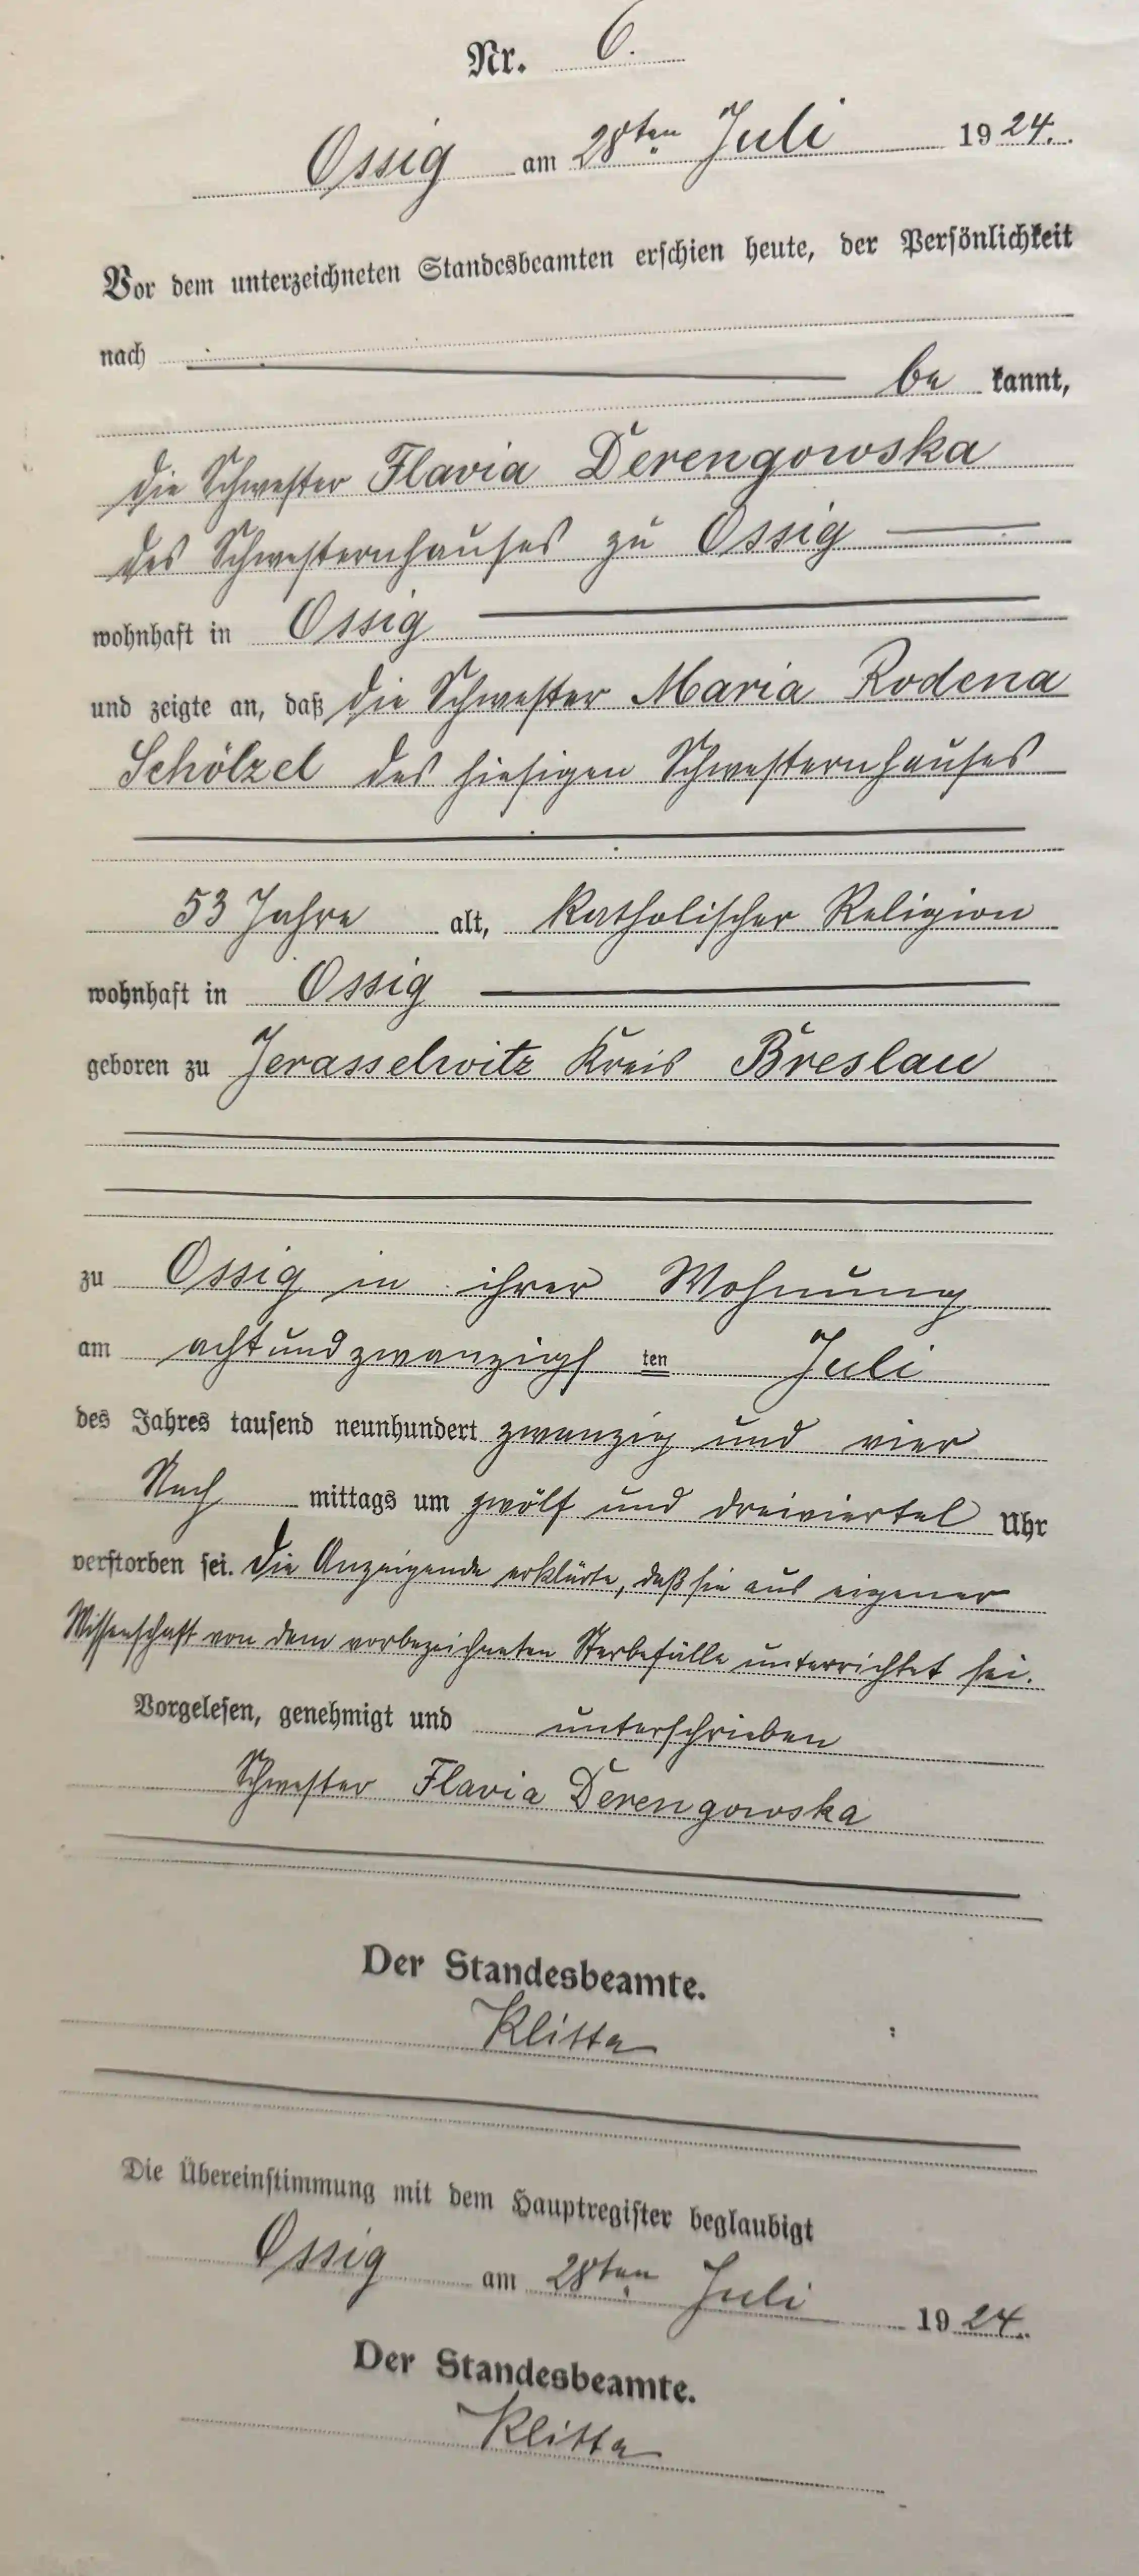 Nr. 6.
Ossig am 28ten Juli 1924.
Vor dem unterzeichneten Standesbeamten erschien heute, der Persönlichkeit
nach
be kannt,
die Schwester Flavia Derengowska
des Schwesternhauses zu Ossig
wohnhaft in Ossig
und zeigte an, daß die Schwester Maria Rodena
Schölzel des hiesigen Schwesternhauses
53 Jahre alt, Katholischer Religion
wohnhaft in Ossig
geboren zu Jerasselwitz Kreis Breslau
zu Ossig in ihrer Wohnung
am achtundzwanzigs ten Juli
des Jahres tausend neunhundert zwanzig und vier
Nach mittags um zwölf und dreiviertel Uhr
verstorben sei. Die Anzeigende erklärte, daß sie aus eigener
Wissenschaft von dem vorbezeichneten Sterbefalle unterrichtet sei.
Vorgelesen, genehmigt und unterschrieben
Schwester Flavia Derengowska
Der Standesbeamte.
Klitta
Die Übereinstimmung mit dem Hauptregister beglaubigt
Ossig am 28ten Juli 1924.
Der Standesbeamte.
Klitta